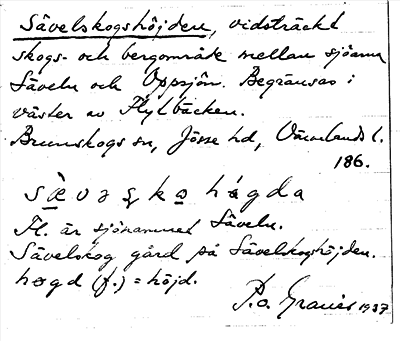 Sävelskogshöjden, vidsträckt
skogs- och bergområde mellan sjöarna
Säveln och Oppsjön. Begränsas i
väster av Flytbäcken.
Brunnskogs sn, Jösse hd, Värmlands l.
186.
høgda
Fl. är sjönamnet Säveln.
Sävelskog gård på Sävelskogshöjden.
høgd (f.) = höjd.
P.o. Granér 1937